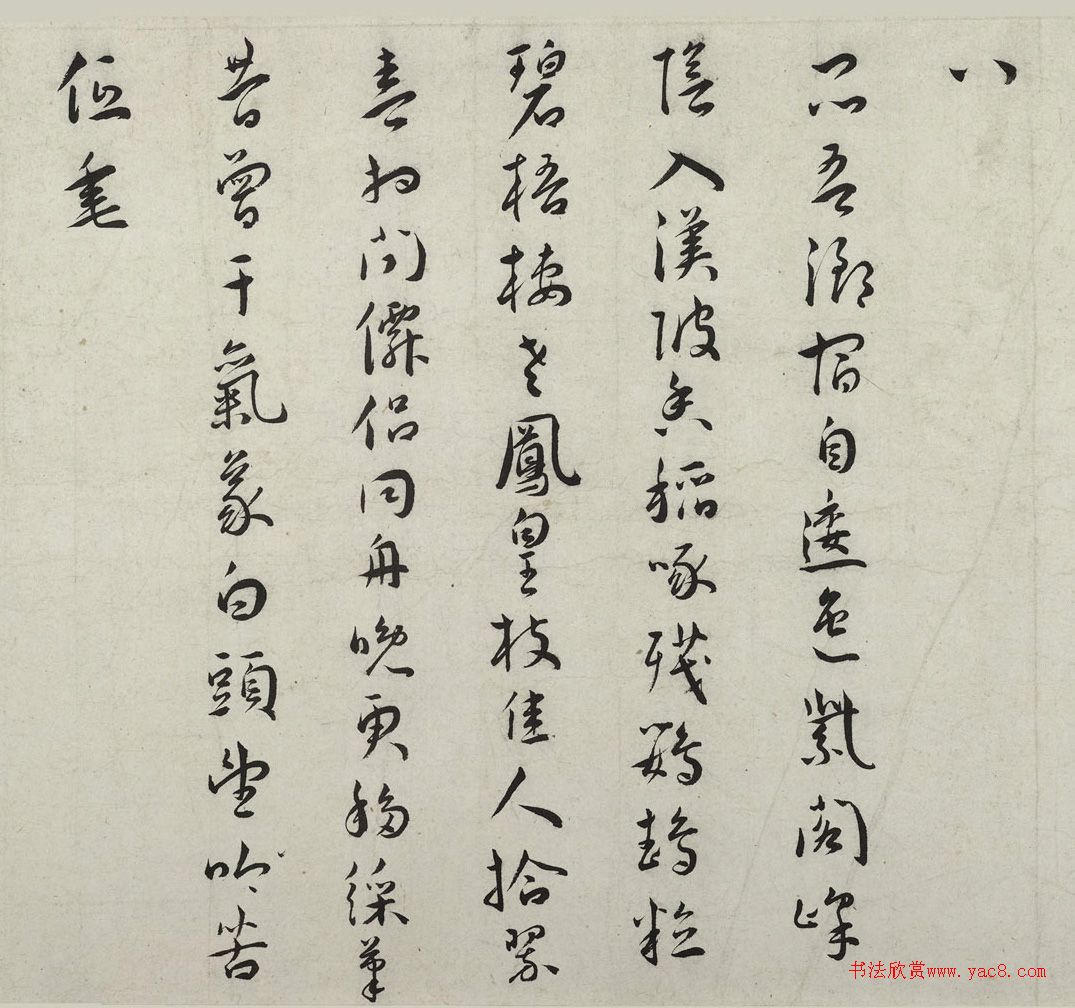 八
昆吾御宿自逶迤紫閣峰
陰入渼陂香稻啄殘鸚鵡粒
碧梧棲老鳳皇枝佳人拾翠
春相問僊侶同舟晚更移綵筆
昔曾干氣象白頭望吟苦
低垂
书法欣赏www.yac8.com